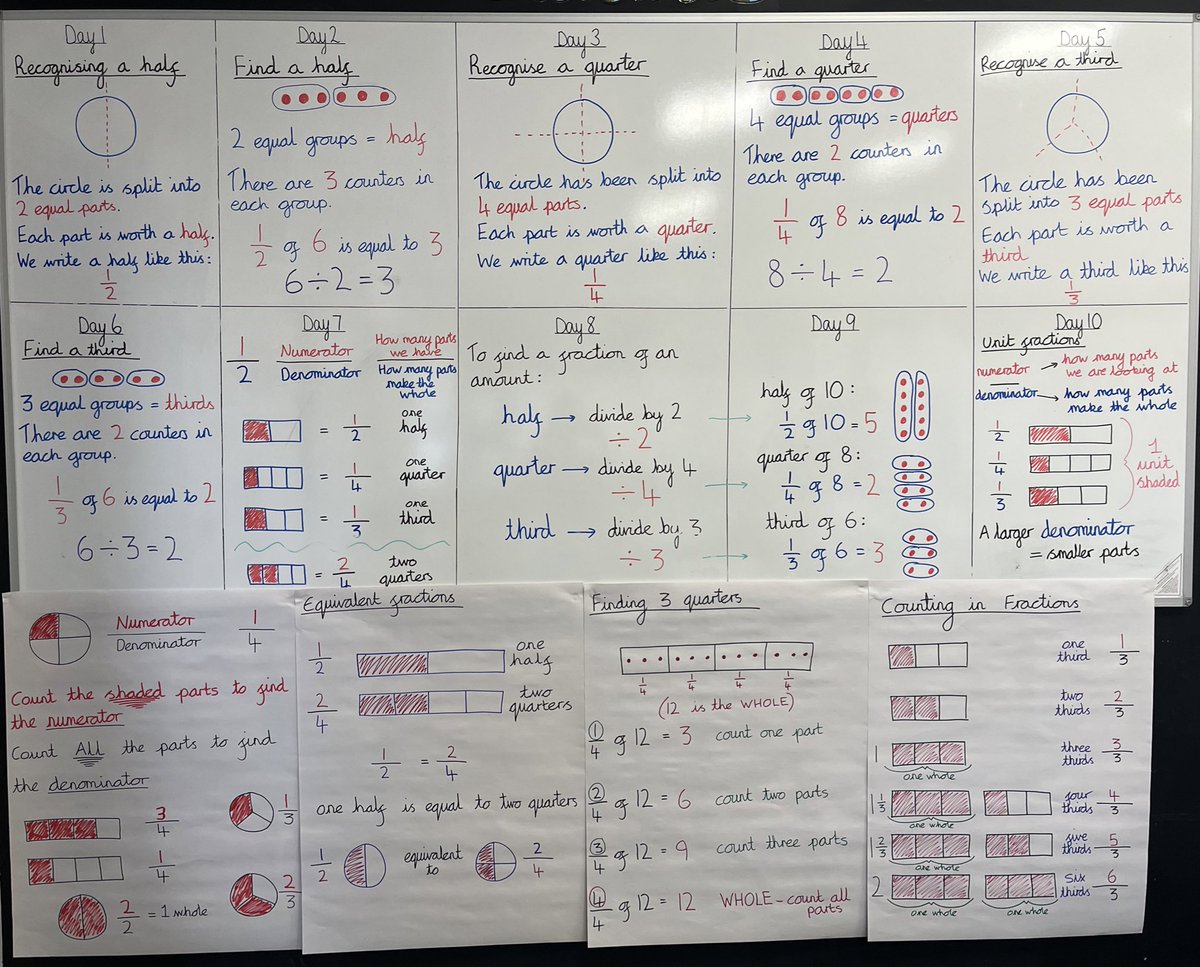 Day 1
Recognising a half
The circle is split into
2 equal parts.
Each part is worth a half.
We write a half like this:
1/2
Day 2
Find a half
2 equal groups = half
There are 3 counters in
each group.
1/2 of 6 is equal to 3
6 ÷ 2 = 3
Day 3
Recognise a quarter
The circle has been split into
4 equal parts.
Each part is worth a quarter.
We write a quarter like this:
1/4
Day 4
Find a quarter
4 equal groups = quarters
There are 2 counters in
each group.
1/4 of 8 is equal to 2
8 ÷ 4 = 2
Day 5
Recognise a third
The circle has been
split into 3 equal parts
Each part is worth a
third
We write a third like this
1/3
Day 6
Find a third
3 equal groups = thirds
There are 2 counters in
each group.
1/3 of 6 is equal to 2
6 ÷ 3 = 2
Day 7
1/2
Numerator
Denominator
How many parts
we have
How many parts
make the
whole
= 1/2 one half
= 1/4 one quarter
= 1/3 one third
= 2/4 two quarters
Day 8
To find a fraction of an
amount:
half → divide by 2
÷ 2
quarter → divide by 4
÷ 4
third → divide by 3
÷ 3
Day 9
half of 10:
1/2 of 10 = 5
quarter of 8:
1/4 of 8 = 2
third of 6:
1/3 of 6 = 3
Day 10
Unit fractions
numerator → how many parts
we are looking at
denominator → how many parts
make the whole
1/2
1/4
1/3
1
unit
shaded
A larger denominator
= smaller parts
Numerator
Denominator
1/4
Count the shaded parts to find
the numerator
Count ALL the parts to find
the denominator
3/4
1/3
1/4
2/2 = 1 whole
2/3
Equivalent fractions
1/2 one half
2/4 two quarters
1/2 = 2/4
one half is equal to two quarters
1/2 equivalent to 2/4
Finding 3 quarters
1/4 1/4 1/4 1/4
(12 is the WHOLE)
1/4 of 12 = 3 count one part
2/4 of 12 = 6 count two parts
3/4 of 12 = 9 count three parts
4/4 of 12 = 12 WHOLE - count all
parts
Counting in Fractions
one third 1/3
two thirds 2/3
1 three thirds 3/3
one whole
1 1/3 four thirds 4/3
one whole
1 2/3 five thirds 5/3
one whole
2 six thirds 6/3
one whole one whole